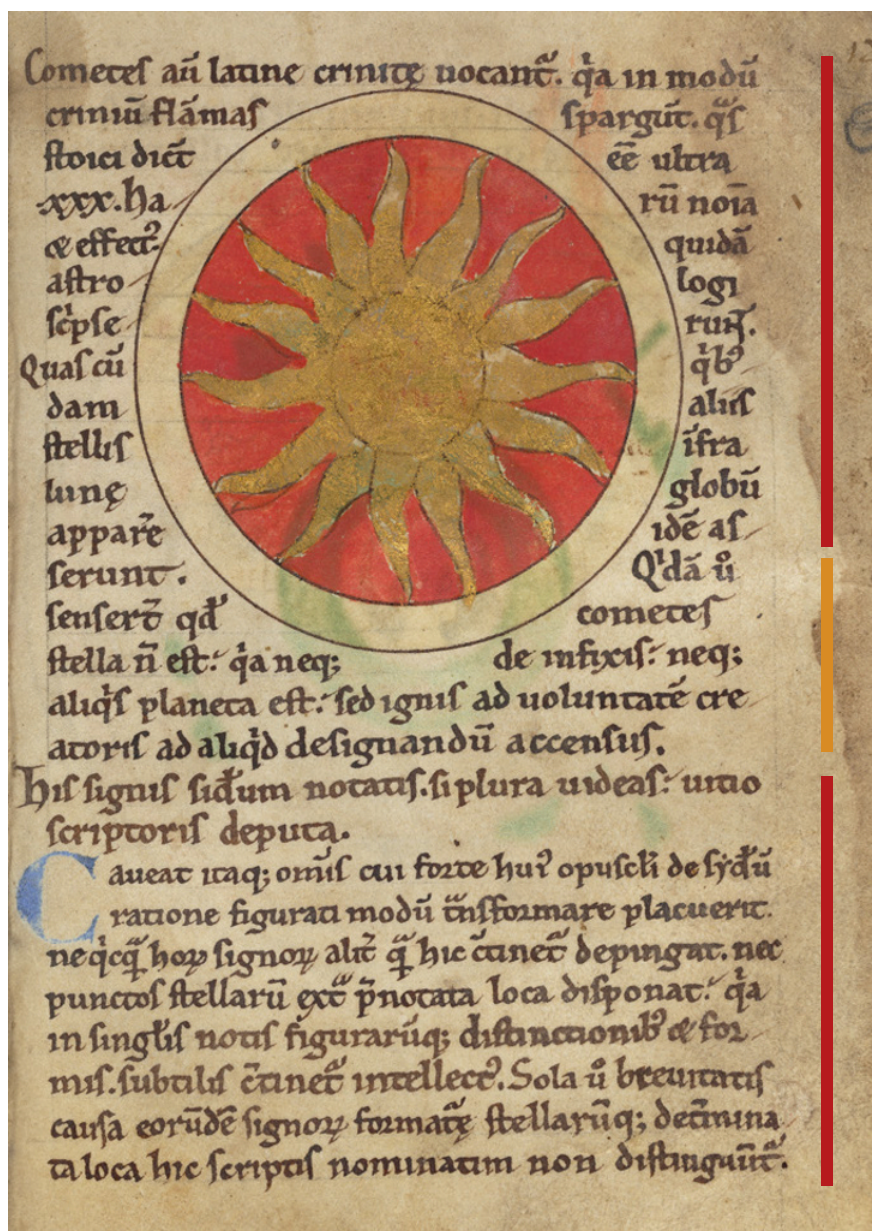 Cometes aū latine crinitę uocant᷑. q̇a in modū
criniū flāmas spargūt. qͣs
stoici dict̄ ēē ultra
xxx. ha rū noīa
& effect᷒ quidā
astro logi
sc̓pse runt̄.
Quas cū q̇bꝰ
dam aliis
stellis īfra
lunę globū
appar̄e idē as
serunt. Q'dā u̾
senser̄t qđ cometes
stella n̄ est. q̇a neq; de infixis. neq;
aliq̇s planeta est. sed ignis ad uoluntatē cre
atoris ad aliq̇d designandū accensus.
His signis siđum notatis. si plura uideas. uitio
scriptoris deputa.
Caueat itaq; om̄is cui forte huiꝰ opuscłi de syđū
ratione figurati modū t̄nsformare placuerit.
ne q̇cqͣ̄ hoꝝ signoꝝ alit̄ qͣ̄ hic c̄tinet᷑ depingat. nec
punctos stellarū extͣ p̄notata loca disponat. q̇a
in singłis notis figurarūq; distinctionibꝰ & for
mis. subtilis c̄tinet᷑ intellectꝰ. Sola u̾ breuitatis
causa eorūdē signoꝝ formatę stellarūq; det̄mina
ta loca hic scriptis nominatim non distinguūt᷑.